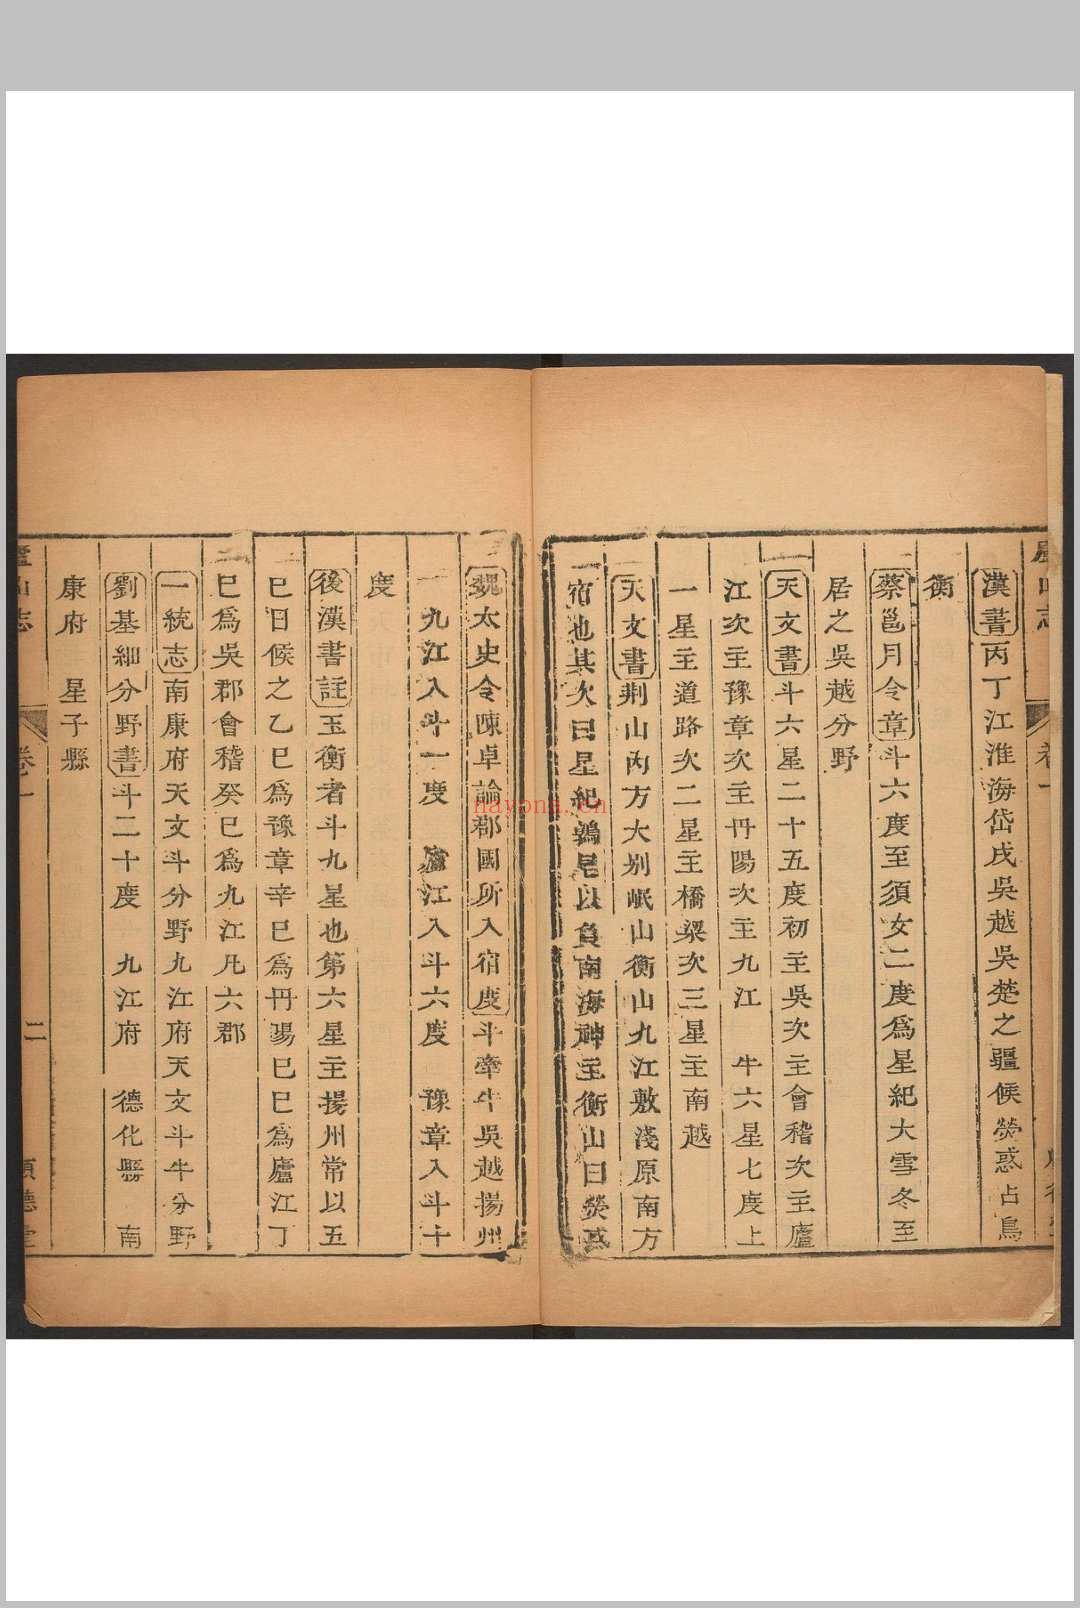 廬山志
卷一
漢書丙丁江淮海岱戌吳越吳楚之疆候熒惑占鳥
衡
蔡邕月令章斗六度至須女二度爲星紀大雪冬至
居之吳越分野
天文書斗六星二十五度初主吳次主會稽次主廬
江次主豫章次主丹陽次主九江 牛六星七度上
一星主道路次二星主橋梁次三星主南越
天文書荆山内方大别岷山衡山九江敷淺原南方
宿也其次曰星紀鶉尾以負南海神主衡山曰熒惑
魏太史令陳卓論郡國所入宿度斗牽牛吳越揚州
九江入斗一度 廬江入斗六度 豫章入斗十
度
後漢書註玉衡者斗九星也第六星主揚州常以五
巳日候之乙巳爲豫章辛巳爲丹陽巳巳爲廬江丁
巳爲吳郡會稽癸巳爲九江凡六郡
一統志南康府天文斗分野九江府天文斗牛分野
劉基細分野書斗二十度 九江府 德化縣 南
康府 星子縣
廬山志
卷一
二
順德堂
nayona.cn